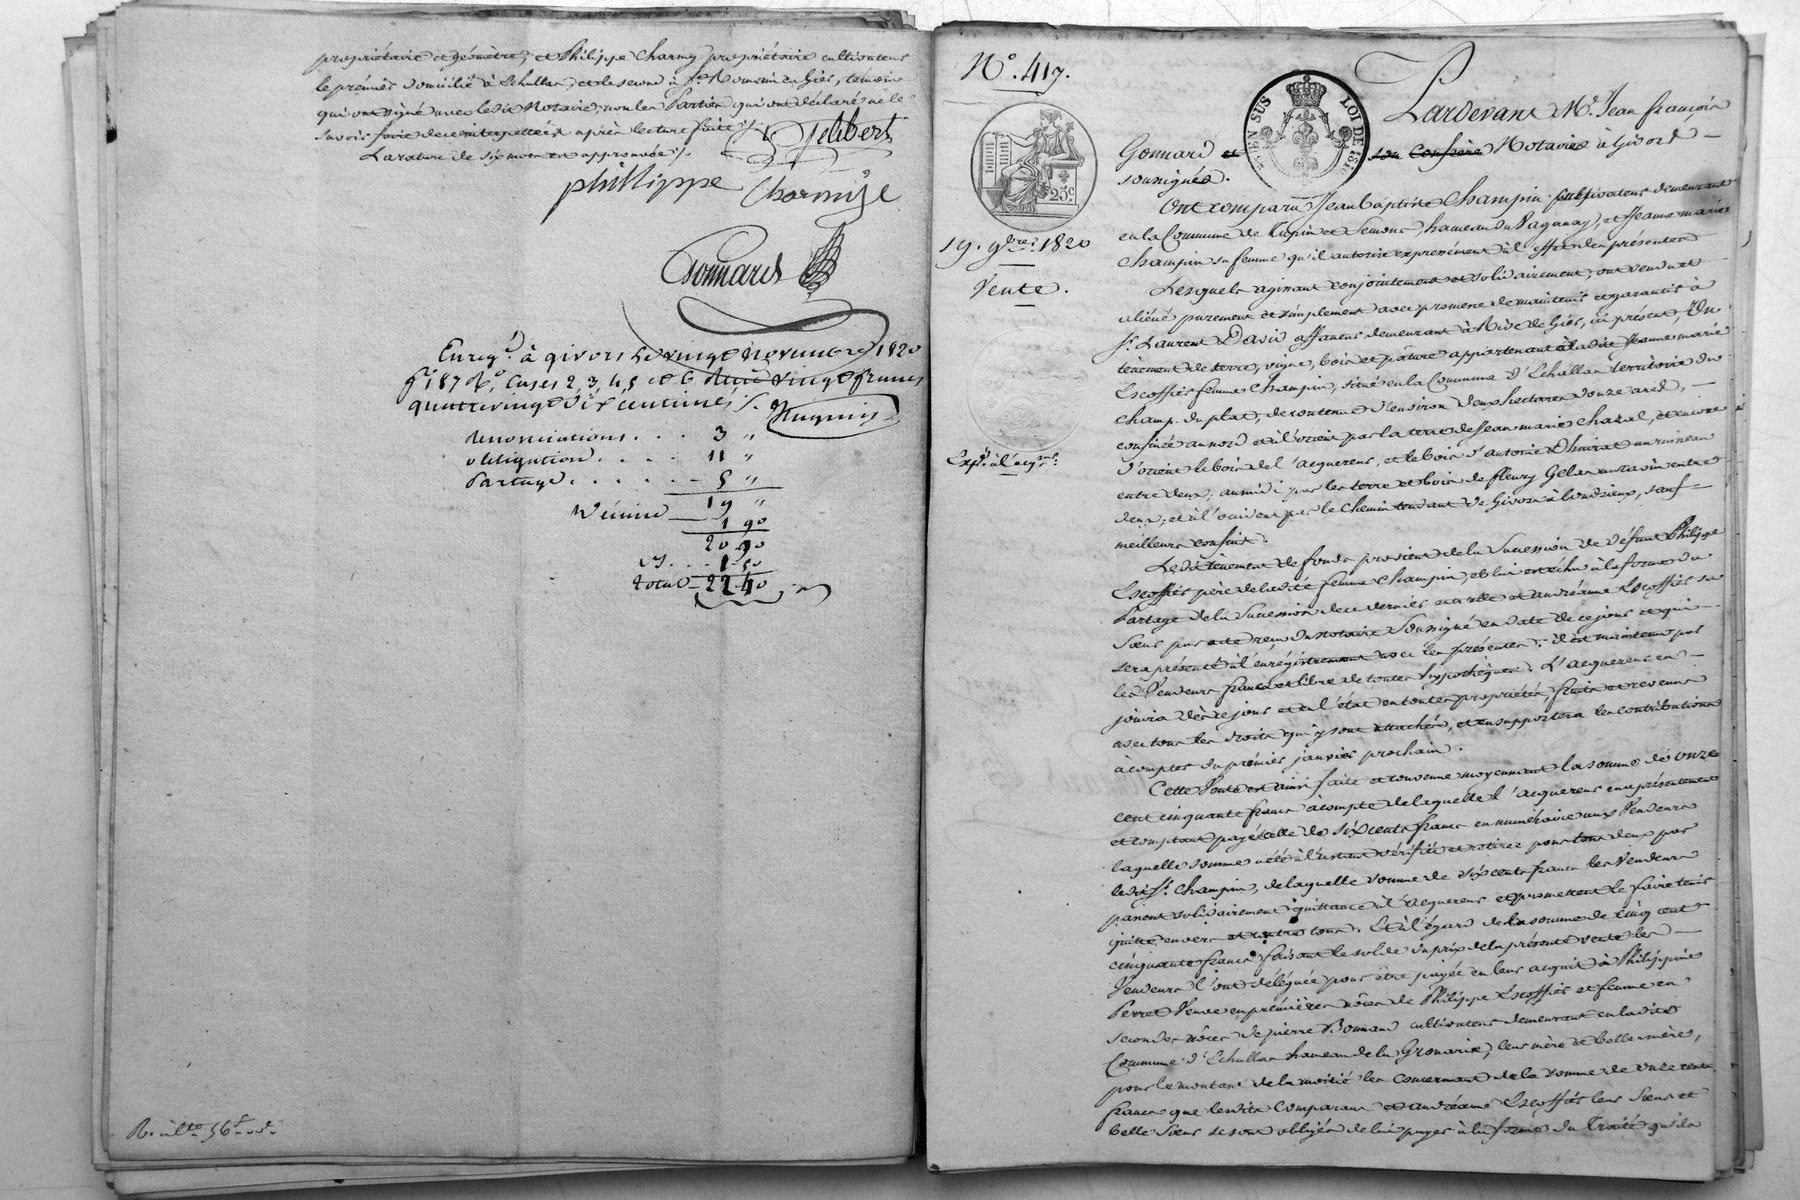 propriétaire et géomètre, et Philippe Charmy propriétaire cultivateur
le premier domicilié à Echallas, et le second à St. Romain en Gier, témoins
qui ont signé avec ledit Notaire, non les Parties qui ont déclaré ne le
savoir faire de ce interpellées après lecture faite ./.
La rature de six mots est approuvée ./.
Jelibert
philippe Charmy
Gonnard
Enregé. à givors le vingt novembre 1820
fo. 187 Ro. Cases 2, 3, 4, 5 et 6 Reçu vingt francs
quatrevingt dix centimes ./.
Renonciations . . . 3 "
obligation . . . . 11 "
Partage . . . . . . 5 "
19 "
Décime 1 90
20 90
1 50
total 22 40
No. 417.
25c
EN SUS
LOI DE 181
19. 9bre. 1820
Vente.
Expé. à l'acqr.
Pardevant Me. Jean François
Gonnard et son Confrère Notaires à Givors
soussignés.
Ont comparu Jean Baptiste Champin cultivateur demeurant
en la Commune de Tupin et Semons hameau du Paganay, et Jeanne marie
Champin sa femme qu'il autorise expressément à l'effet des présentes
Lesquels agissant conjointement et solidairement, ont vendu et
aliéné purement et simplement avec promesse de maintenir et garantir à
Sr. Laurent David affaneur demeurant à Rive de Gier, ici présent, Un
tènement de terre, vigne, bois et pâture appartenant à ladite Jeanne marie
Escoffier femme Champin, situé en la Commune d'Echallas territoire du
Champ du plat, de contenue d'environ deux hectares douze ares,
confinée au nord et à l'orient par la terre de Jean marie Chazal, et encore
d'orient le bois de l'acquereur, et le bois d'antoine Dhoirat un ruisseau
entre deux; au midi par les terre et bois de fleury Gelas un ravin entre
deux; et à l'occident par le Chemin tendant de Givors à Condrieux, sauf
meilleurs confins.
Le dit tènement de fonds provient de la Succession de défunt Philippe
Escoffier père de ladite femme Champin, et lui est échu à la forme du
Partage de la Succession de ce dernier entr'elle et andréanne Escoffier sa
Sœur par acte reçu du notaire Soussigné en date de ce jour et qui
sera présenté à l'enrégistrement avec les présentes; il est maintenu par
les Vendeurs franc et libre de toutes hypothèques. L'acquereur en
jouira dès ce jour et en l'état en toutes propriétés, fruits et revenus
avec tous les droits qui y sont attachés, et en supportera les contributions
à compter du premier janvier prochain.
Cette Vente est ainsi faite et convenue moyennant la somme de onze
cent cinquante francs à compte de laquelle l'acquereur en a présentement
et comptant payé celle de six cents francs en numéraire aux Vendeurs
laquelle somme a été à l'instant vérifiée et retirée pour tous deux par
ledit Sr. Champin, de laquelle somme de six cents francs les Vendeurs
passent solidairement quittance à l'acquereur et promettent le faire tenir
quitte envers et contre tous. Et à l'égard de la somme de cinq cent
cinquante francs faisant le solde du prix de la présente vente les
Vendeurs l'ont déléguée pour être payée en leur acquit à Philippine
Perret Veuve en premières nôces de Philippe Escoffier et femme en
secondes nôces de pierre Bonnand cultivateur demeurant en ladite
Commune d'Echallas hameau de la Gronarie, leur mère et belle mère,
pour le montant de la moitié les concernant de la somme de onze cents
francs que lesdits comparans et andréanne Escoffier leur Sœur et
belle Sœur se sont obligés de lui payer à la forme du Traité qu'ils